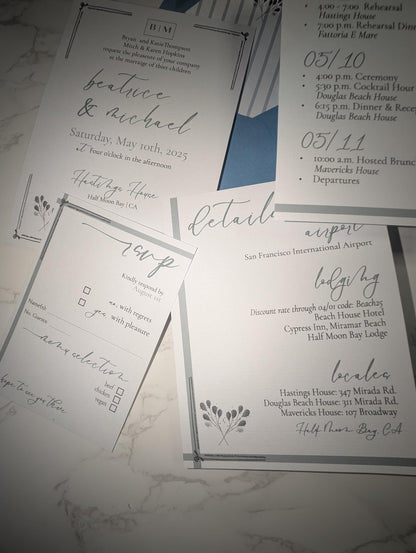 B | M
Bryan and Katie Thompson
Mitch & Karen Hopkins
request the pleasure of your company
at the marriage of their children
beatrice
& michael
Saturday, May 10th, 2025
at Four o'clock in the afternoon
Hastings House
Half Moon Bay | CA
4:00 - 7:00 Rehearsal
Hastings House
7:00 p.m. Rehearsal Din
Fattoria E Mare
05/10
4:00 p.m. Ceremony
5:30 p.m. Cocktail Hour
Douglas Beach House
6:15 p.m. Dinner & Rece
Douglas Beach House
05/11
10:00 a.m. Hosted Brunc
Mavericks House
Departures
rsvp
Kindly respond by
August 1st
no, with regrets
yes, with pleasure
Name(s):
No. Guests:
menu selection
beef
chicken
vegan
hope to see you there
details
airport
San Francisco International Airport
lodging
Discount rate through 04/01 code: Beach25
Beach House Hotel
Cypress Inn, Miramar Beach
Half Moon Bay Lodge
locales
Hastings House: 347 Mirada Rd.
Douglas Beach House: 311 Mirada Rd.
Mavericks House: 107 Broadway
Half Moon Bay, CA